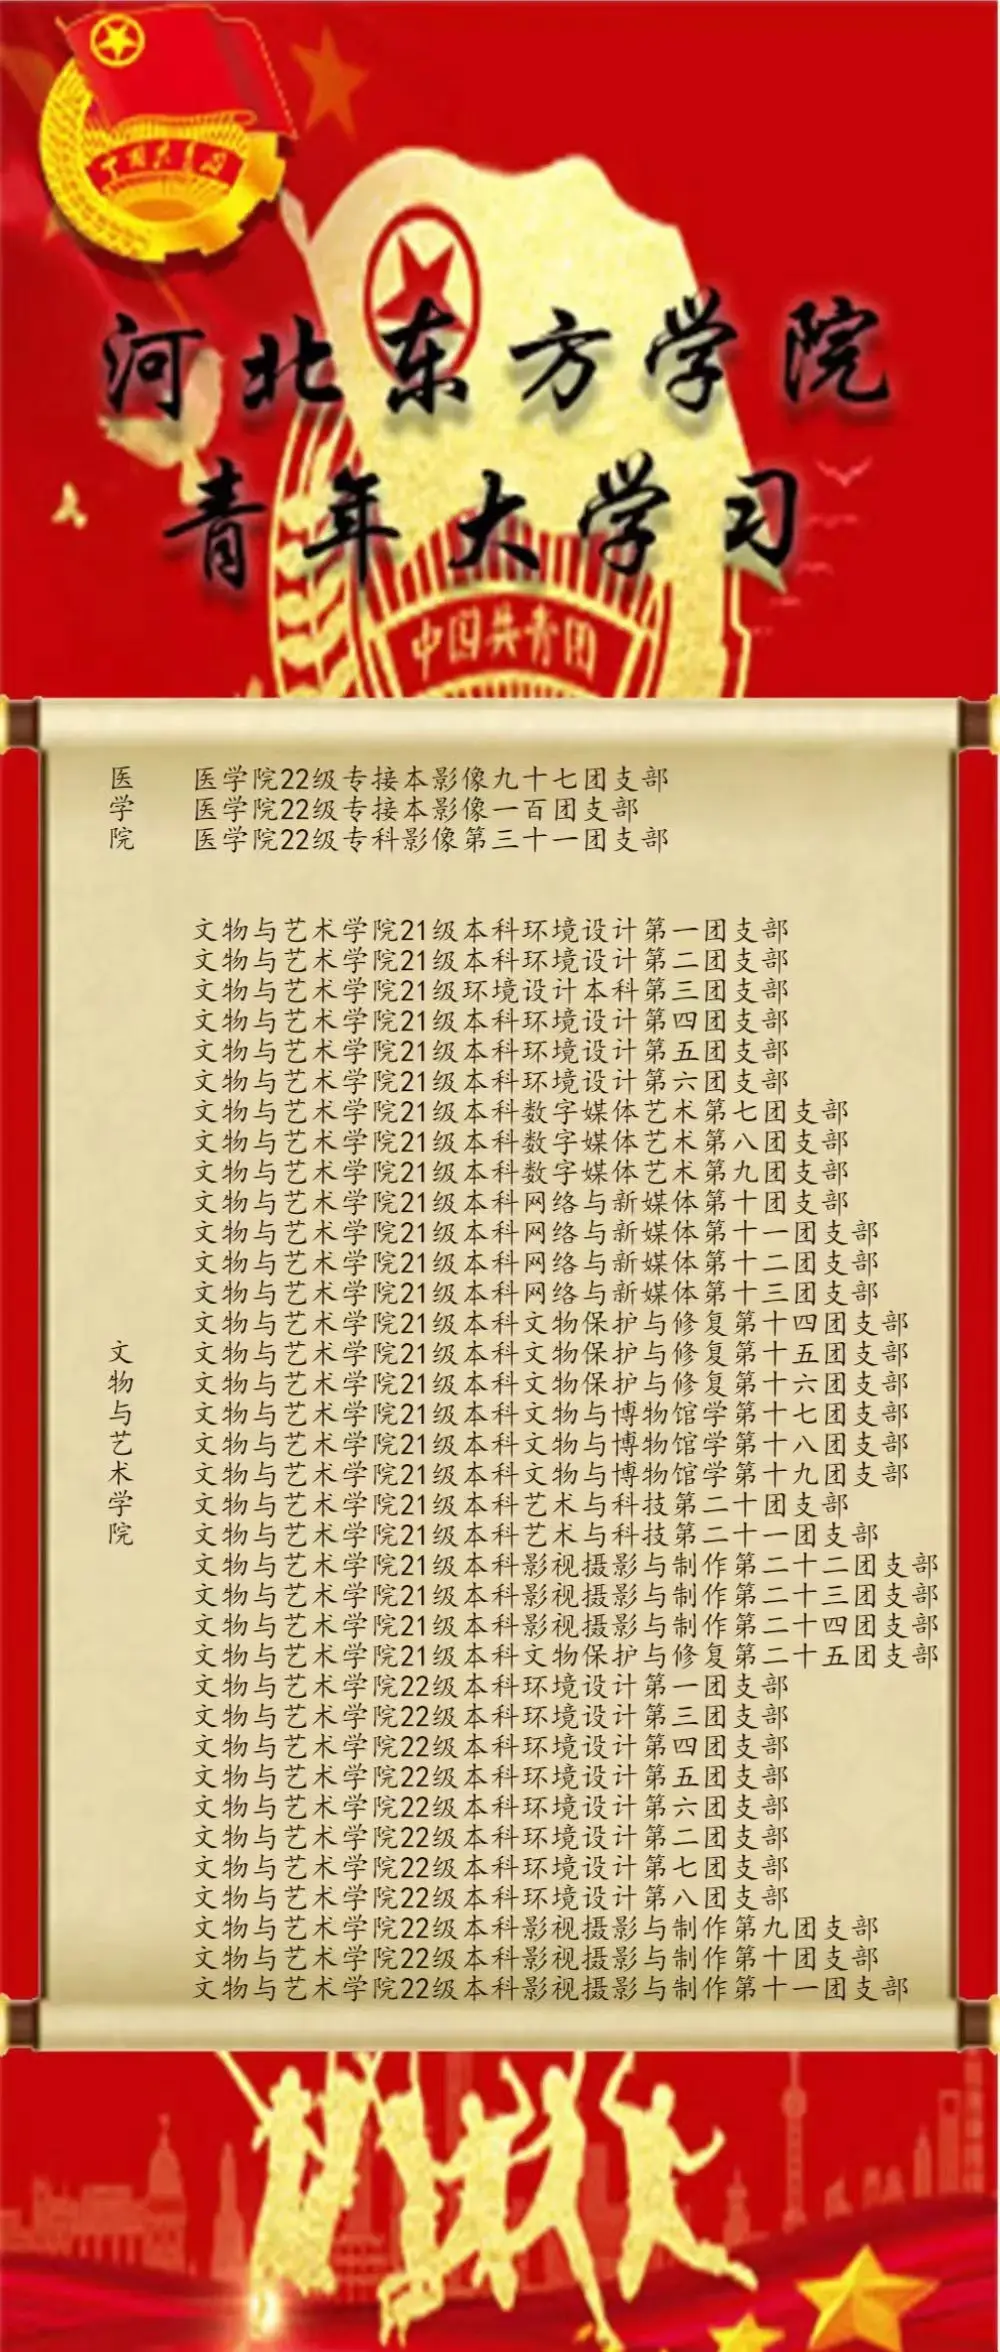 中国共青团
河北东方学院
青年大学习
中国共青团
医学院
医学院22级专接本影像九十七团支部
医学院22级专接本影像一百团支部
医学院22级专科影像第三十一团支部
文物与艺术学院
文物与艺术学院21级本科环境设计第一团支部
文物与艺术学院21级本科环境设计第二团支部
文物与艺术学院21级环境设计本科第三团支部
文物与艺术学院21级本科环境设计第四团支部
文物与艺术学院21级本科环境设计第五团支部
文物与艺术学院21级本科环境设计第六团支部
文物与艺术学院21级本科数字媒体艺术第七团支部
文物与艺术学院21级本科数字媒体艺术第八团支部
文物与艺术学院21级本科数字媒体艺术第九团支部
文物与艺术学院21级本科网络与新媒体第十团支部
文物与艺术学院21级本科网络与新媒体第十一团支部
文物与艺术学院21级本科网络与新媒体第十二团支部
文物与艺术学院21级本科网络与新媒体第十三团支部
文物与艺术学院21级本科文物保护与修复第十四团支部
文物与艺术学院21级本科文物保护与修复第十五团支部
文物与艺术学院21级本科文物保护与修复第十六团支部
文物与艺术学院21级本科文物与博物馆学第十七团支部
文物与艺术学院21级本科文物与博物馆学第十八团支部
文物与艺术学院21级本科文物与博物馆学第十九团支部
文物与艺术学院21级本科艺术与科技第二十团支部
文物与艺术学院21级本科艺术与科技第二十一团支部
文物与艺术学院21级本科影视摄影与制作第二十二团支部
文物与艺术学院21级本科影视摄影与制作第二十三团支部
文物与艺术学院21级本科影视摄影与制作第二十四团支部
文物与艺术学院21级本科文物保护与修复第二十五团支部
文物与艺术学院22级本科环境设计第一团支部
文物与艺术学院22级本科环境设计第三团支部
文物与艺术学院22级本科环境设计第四团支部
文物与艺术学院22级本科环境设计第五团支部
文物与艺术学院22级本科环境设计第六团支部
文物与艺术学院22级本科环境设计第二团支部
文物与艺术学院22级本科环境设计第七团支部
文物与艺术学院22级本科环境设计第八团支部
文物与艺术学院22级本科影视摄影与制作第九团支部
文物与艺术学院22级本科影视摄影与制作第十团支部
文物与艺术学院22级本科影视摄影与制作第十一团支部